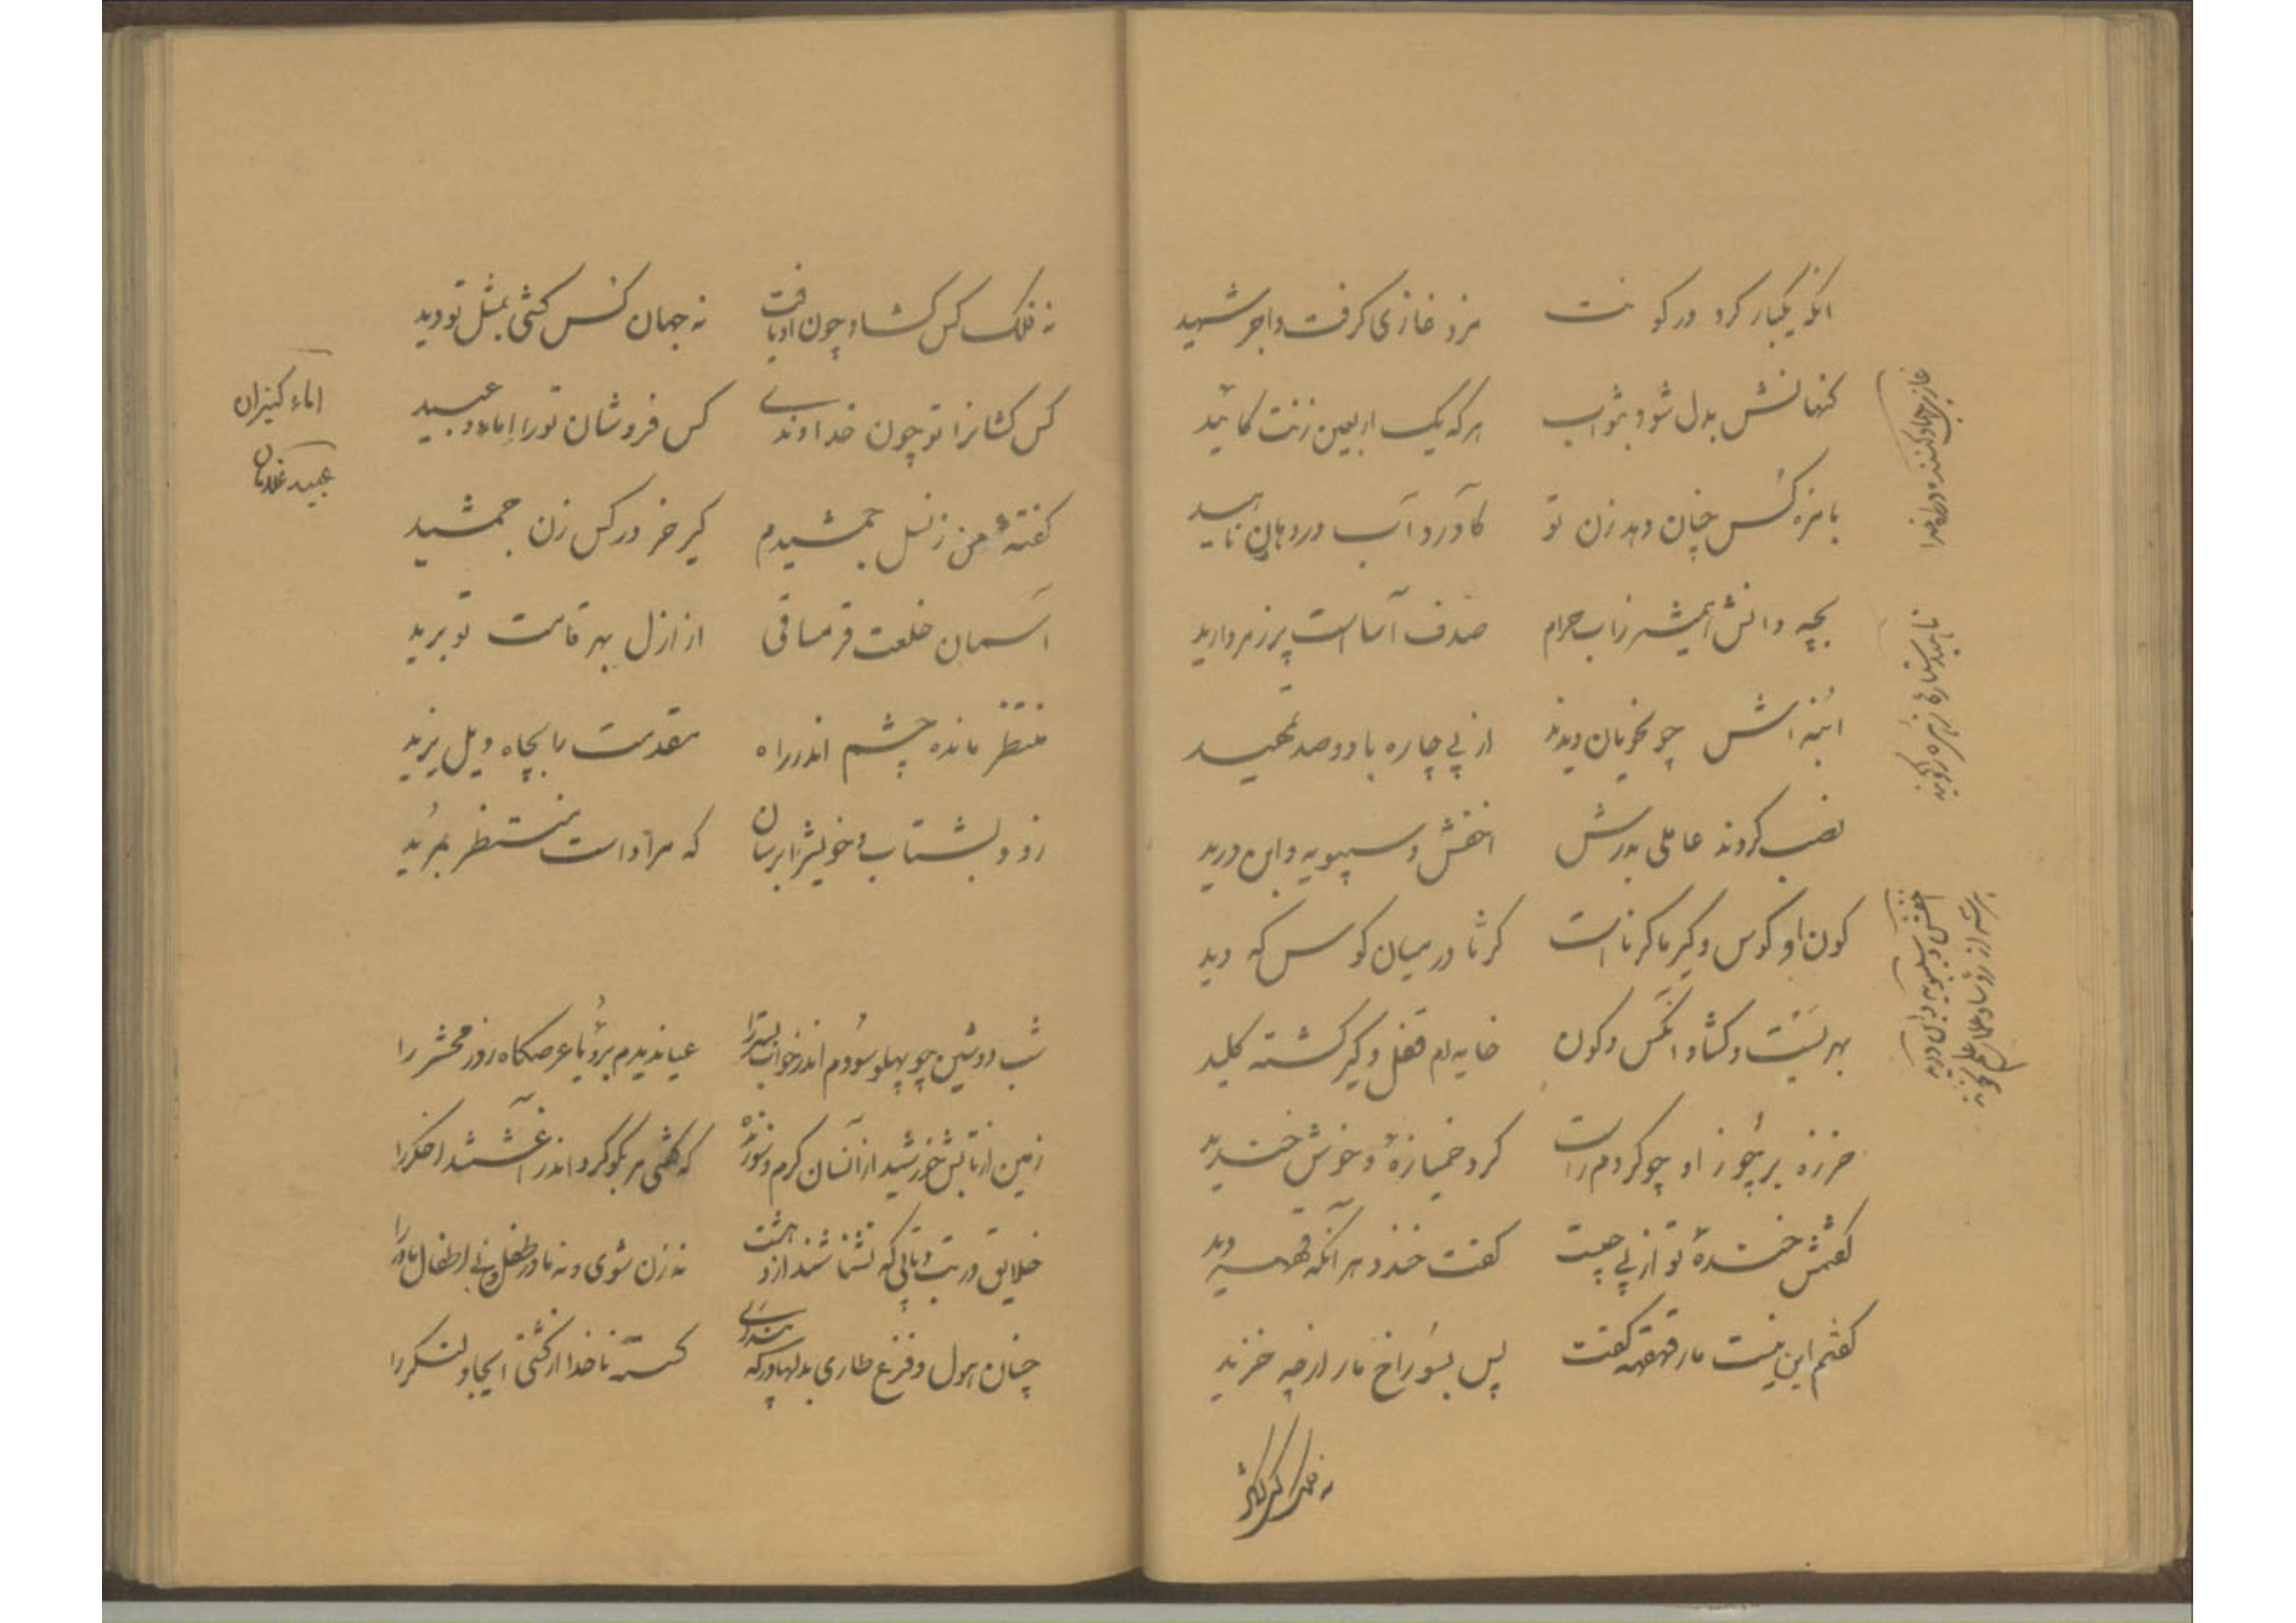 آنکه یکبار کرد در کونت	مزد غازی گرفت و اجر شهید
گنهانش بدل شود بثواب	هرکه یک اربعین زنت گائید
بامزه کس چنان دهد زن تو	کآورد آب در دهان ناهید
بچه دانش همیشه ز آب حرام	صدف آساست پر ز مروارید
ابنه اش چو نحویان دیدند	از پی چاره با دو صد تمهید
نصب کردند عاملی بدرش	اخفش و سیبویه و ابن درید
کون او کوس و کیر ما کرناست	کرنا در میان کوس که دید
بهر بست و گشاد آنکس و کون	خایه ام قفل و کیر گشته کلید
خرزه بر چوز او چو کردم راست	کرد خمیازهٔ و خوش خندید
گفتمش خندهٔ تو از پی چیست	گفت خندد هر آنکه قهقهه دید
گفتم این نیست مار قهقهه گفت	پس بسوراخ مار از چه خزید
نه فلک کس گشاد
غازی جهاد کننده در راه خدا
ناهید ستاره زهره را گویند
اخفش و سیبویه و ابن درید
هر سه از رؤسا و علمای علم نحوند
نه فلک کس گشاد چون او یافت	نه جهان کس کشی بمثل تو دید
کس کشانرا تو چون خداوندی	کس فروشان تو را اماء و عبید
گفتهٔ من ز نسل جمشیدم	کیر خر در کس زن جمشید
آسمان خلعت قرمساقی	از ازل بهر قامت تو برید
منتظر مانده چشم اندر راه	مقدمت را بچاه ویل یزید
زود بشتاب و خویش را برسان	که مر او راست منتظر به یزید
اماء کنیزان
عبید غلامان
شب دوشین چو پهلو سودم اندر خواب بستر را	عیان دیدم برؤیا عرصگاه روز محشر را
زمین از تابش خورشید از آنسان گرم و سوزنده	که گفتی مر بگوگرد اندر آغشتند اخگر را
خلایق در تب و تابی که نشناسند از دهشت	نه زن شوی و نه مادر طفل و نی اطفال مادر را
چنان هول و فزع طاری بدلها در که پنداری	گسسته ناخدا از کشتی ایجاد لنگر را